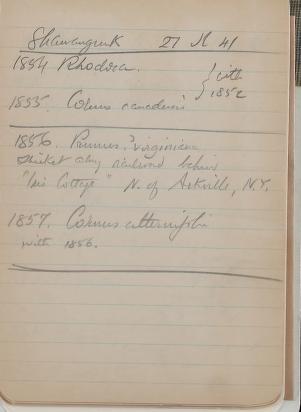 Shawangunk 27 V 41
1854 Rhodora. } with
1855. Cornus canadensis 1852
1856. Prunus ? virginiana
thicket along railroad below
"Iris Cottage" N. of Arkville, N.Y.
1857. Cornus alternifolia
with 1856.